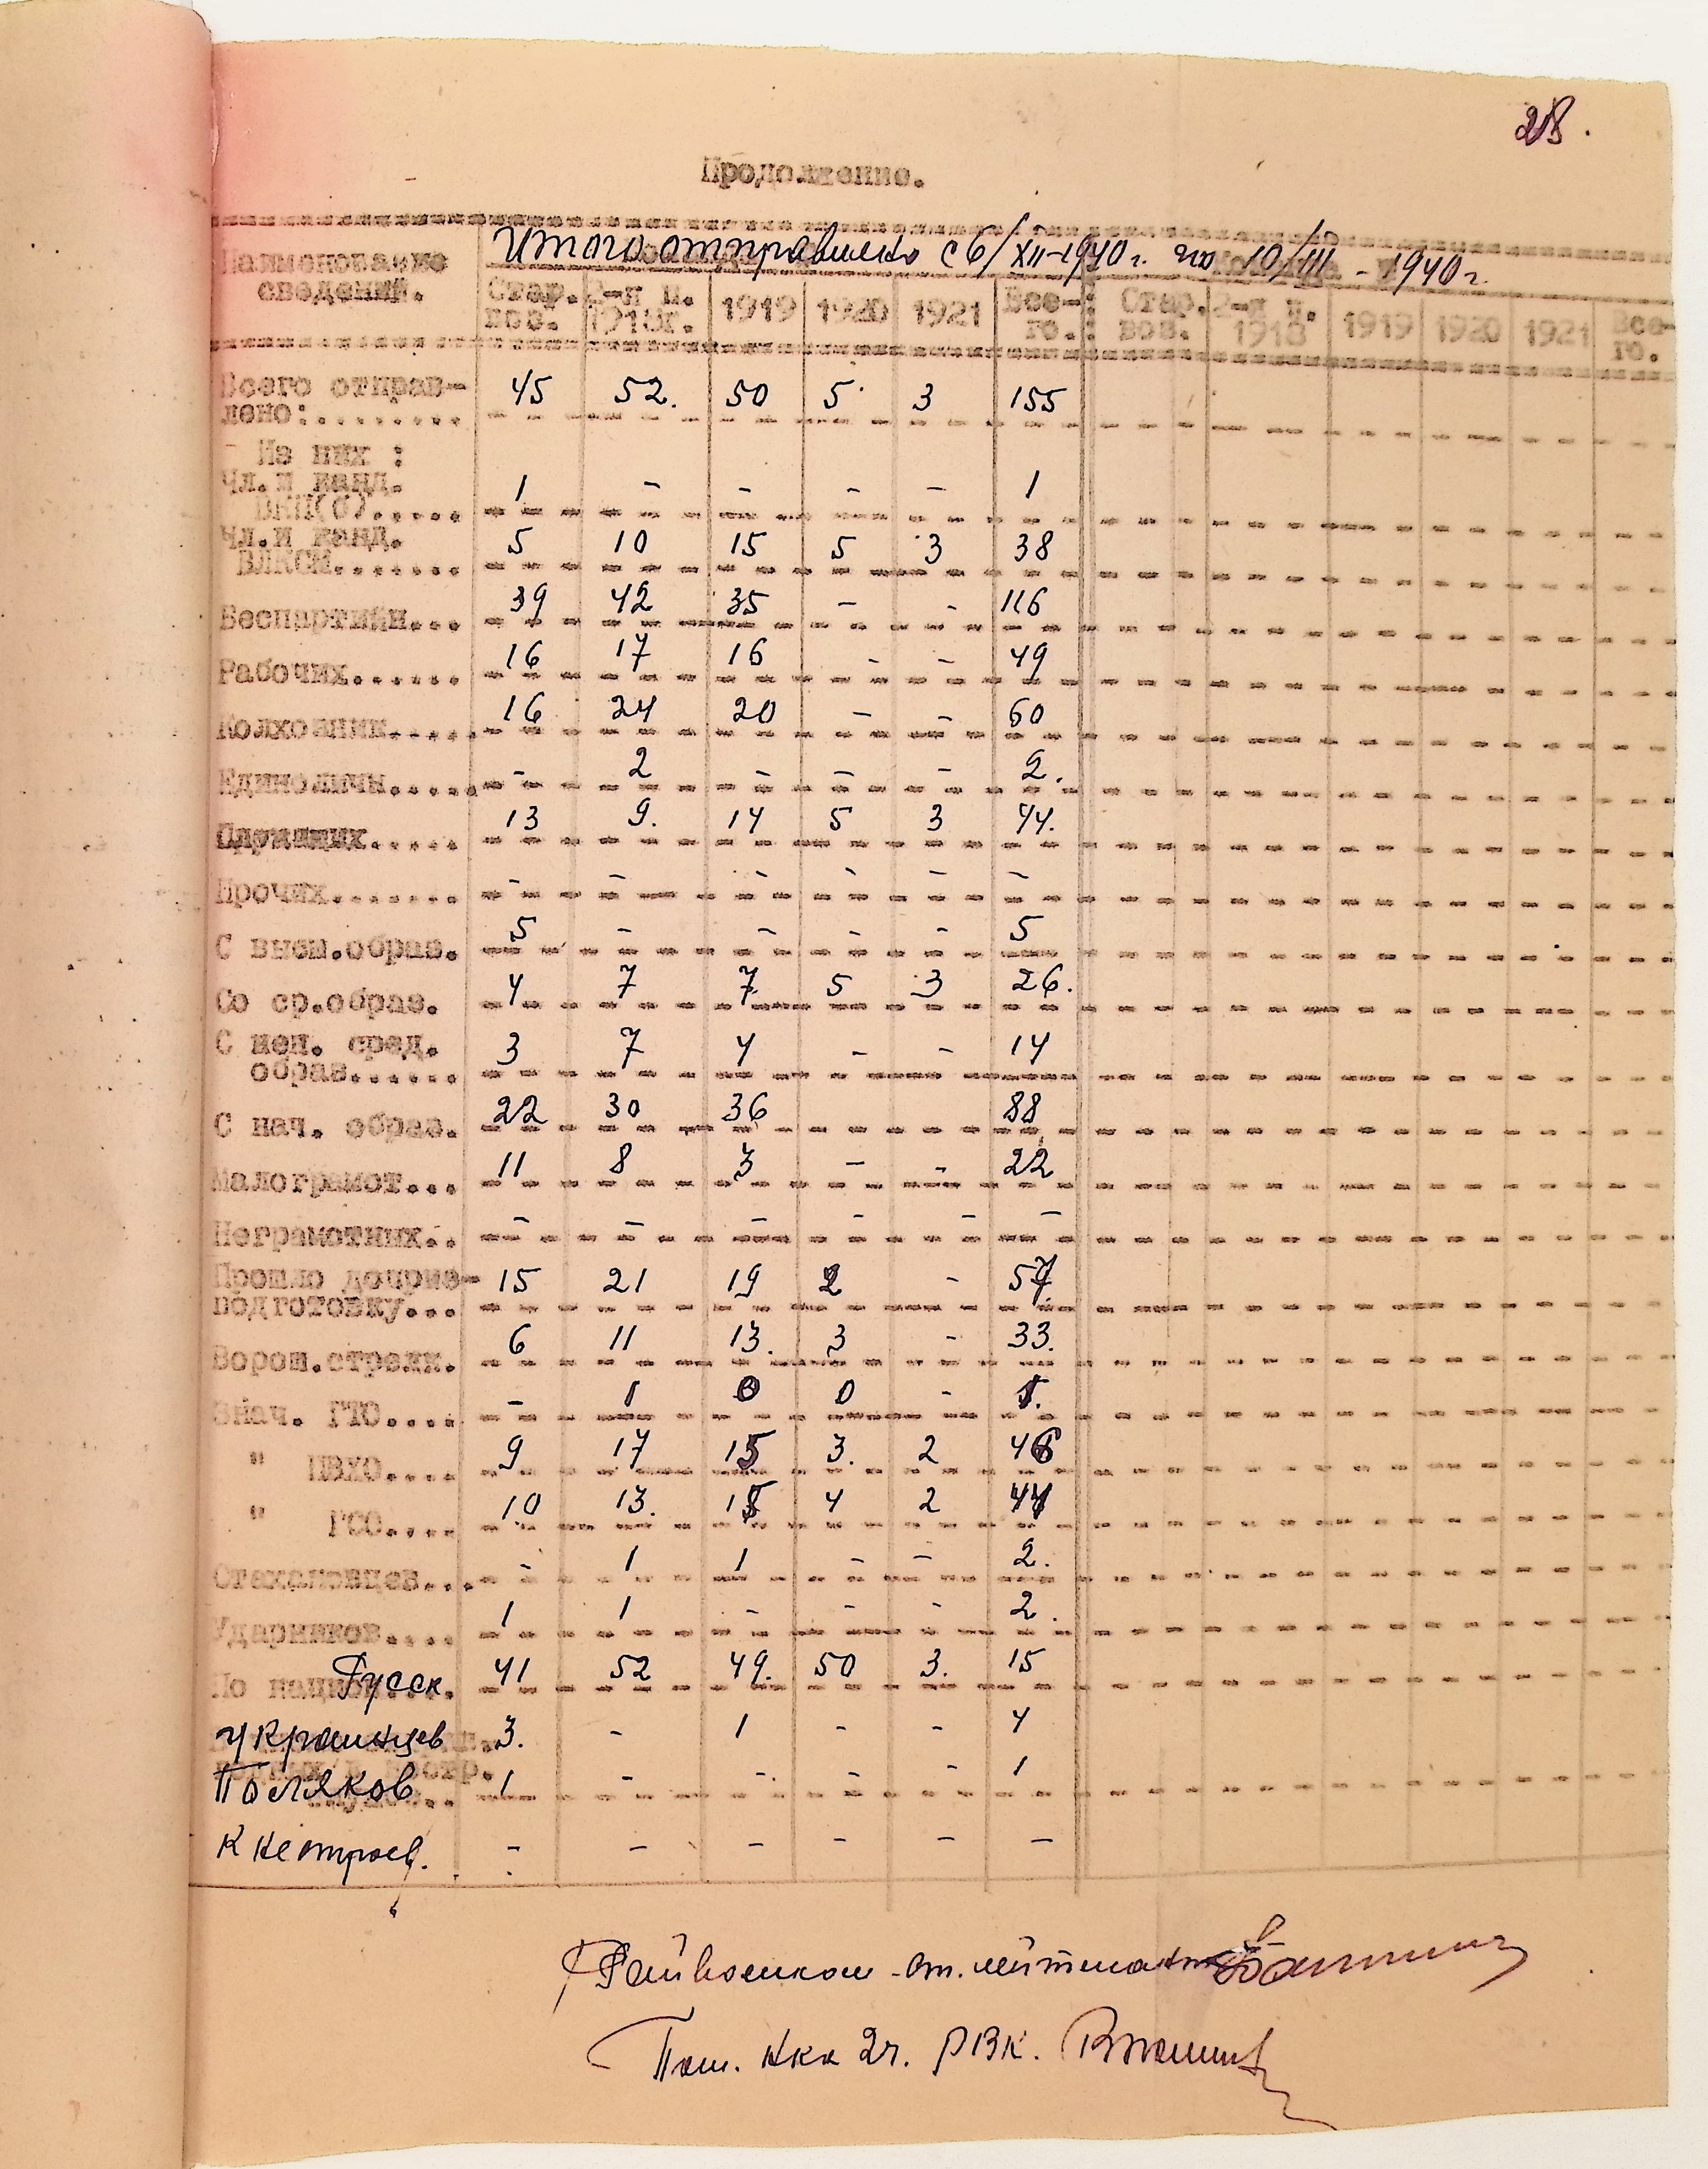 28.
Продолжение.
Итого отправлено с 6/XII-1940г. по 10/III-1940г.
Наименование сведений.
Стар. воз. 2-я п. 1918г. 1919 1920 1921 Все-го. Стар. воз. 2-я п. 1918 1919 1920 1921 Все-го.
Всего отправ-
лено:......... 45 52. 50 5 3 155
Из них :
Чл.и канд.
ВКП(б)..... 1 - - - - 1
Чл.и канд.
ВЛКСМ....... 5 10 15 5 3 38
Беспартийн... 39 42 35 - - 116
Рабочих...... 16 17 16 - - 49
Колхозник..... 16 24 20 - - 60
Единоличн..... - 2 - - - 2.
Служащих..... 13 9. 14 5 3 44.
Прочих....... - - - - - -
С высш.образ. 5 - - - - 5
Со ср.образ. 4 7 7. 5 3 26.
С неп. сред.
образ...... 3 7 4 - - 14
С нач. образ. 22 30 36 88
Малограмот... 11 8 3 - - 22
Неграмотных.. - - - - - -
Прошло доприз-
подготовку... 15 21 19 2 - 57
Ворош.стрелк. 6 11 13. 3 - 33.
Знач. ГТО.... - 1 0 0 - 1.
" ПВХО.... 9 17 15 3. 2 46
" ГСО.... 10 13. 15 4 2 44
Стахановцев... - 1 1 - - 2.
Ударников.... 1 1 - - - 2.
По национ.... Русск. 41 52 49. 50 3. 15
Украинцев 3. - 1 - - 4
Поляков 1 - - - - 1
К нестроев. - - - - - -
Райвоенком - ст. лейтенант
Пом. нка 2ч. РВК.